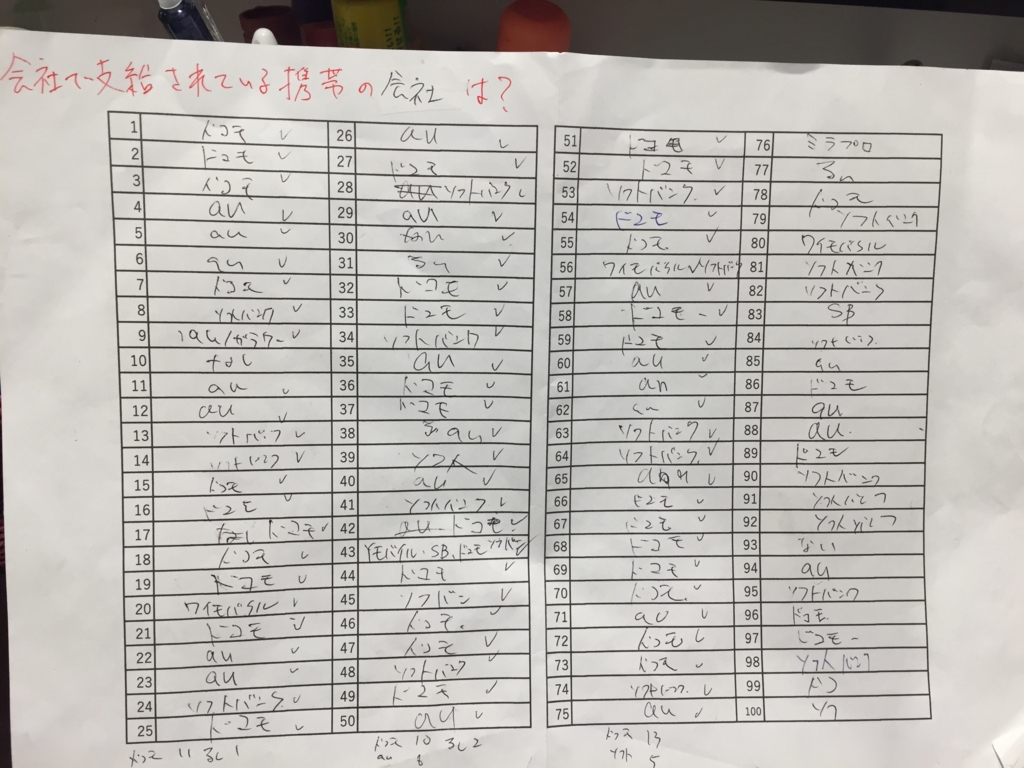 会社で支給されている携帯の会社は?
1 ドコモ ✓
2 ドコモ ✓
3 ドコモ ✓
4 au ✓
5 au ✓
6 au ✓
7 ドコモ ✓
8 ソフトバンク ✓
9 au/ガラケー ✓
10 なし
11 au ✓
12 au ✓
13 ソフトバンク ✓
14 ソフトバンク ✓
15 ドコモ ✓
16 ドコモ ✓
17 ドコモ ✓
18 ドコモ ✓
19 ドコモ ✓
20 ワイモバイル ✓
21 ドコモ ✓
22 au ✓
23 au ✓
24 ソフトバンク ✓
25 ドコモ ✓
26 au ✓
27 ドコモ ✓
28 ソフトバンク ✓
29 au ✓
30 ない ✓
31 ✓
32 ドコモ ✓
33 ドコモ ✓
34 ソフトバンク ✓
35 au ✓
36 ドコモ ✓
37 ドコモ ✓
38 au ✓
39 ソフト ✓
40 au ✓
41 ソフトバンク ✓
42 au ドコモ ✓
43 Yモバイル・SB、ドコモ ソフトバンク
44 ドコモ ✓
45 ソフバン ✓
46 ドコモ ✓
47 ドコモ ✓
48 ソフトバンク ✓
49 ドコモ ✓
50 au ✓
51 ドコモ ✓
52 ドコモ ✓
53 ソフトバンク ✓
54 ドコモ ✓
55 ドコモ ✓
56 ワイモバイル ✓ ソフトバンク
57 au ✓
58 ドコモー ✓
59 ドコモ ✓
60 au ✓
61 au ✓
62 au ✓
63 ソフトバンク ✓
64 ソフトバンク ✓
65 ✓
66 ドコモ ✓
67 ドコモ ✓
68 ドコモ ✓
69 ドコモ ✓
70 ドコモ ✓
71 au ✓
72 ドコモ ✓
73 ドコモ ✓
74 ソフトバンク ✓
75 au ✓
76 ミラプロ
77
78 ドコモ
79 ソフトバンク
80 ワイモバイル
81 ソフトバンク
82 ソフトバンク
83 SB
84 ソフトバンク
85 au
86 ドコモ
87 au
88 au
89 ドコモ
90 ソフトバンク
91 ソフトバンク
92 ソフトバンク
93 ない
94 au
95 ソフトバンク
96 ドコモ
97 ドコモー
98 ソフトバンク
99 ドコ
100 ソフ
ドコモ 11 なし 1
ドコモ 10 なし 2
au 8
ドコモ 13
ソフト 5